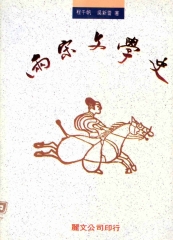 程千帆　吳新雷　著
兩宋文學史
麗文公司印行